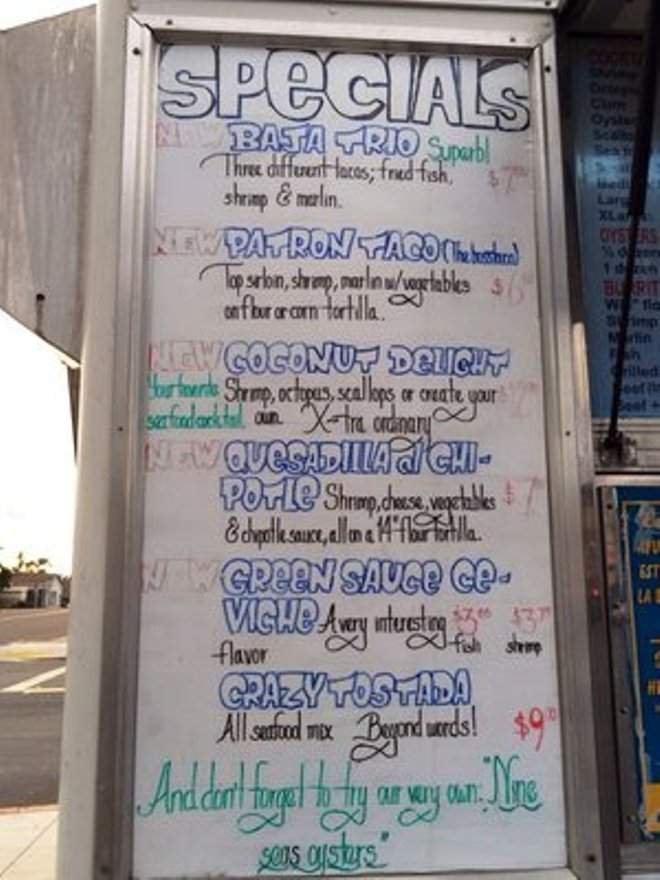 SPECIALS
NEW BAJA TRIO Superb!
Three different tacos; fried fish, $7
shrimp & marlin.
NEW PATRON TACO (The bosstaco)
Top sirloin, shrimp, marlin w/vegetables $6
on flour or corn tortilla.
NEW COCONUT DELIGHT
Your favorite Shrimp, octopus, scallops or create your
seafood cocktail own. X-tra ordinary
NEW QUESADILLA al CHI-
POTLE Shrimp, cheese, vegetables $7
& chipotle sauce, all on a 14" flour tortilla.
NEW GREEN SAUCE CE-
VICHE A very interesting
flavor fish shrimp
CRAZY TOSTADA
All seafood mix Beyond words! $9
And don't forget to try our very own: "Nine
seas oysters"
Shrimp
Oyster
OYSTERS
1 dozen
BURRIT
Shrimp
Marlin
Fish
Grilled
Beef
Beef +
EST
LA